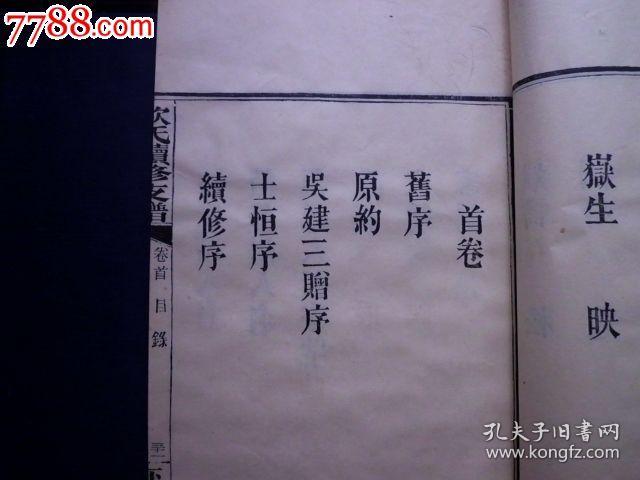 嶽生 映
首卷
舊序
原約
吳建三贈序
士恒序
續修序
氏續修支譜
卷首 目錄
7788.com
孔夫子旧书网
www.kongfz.com